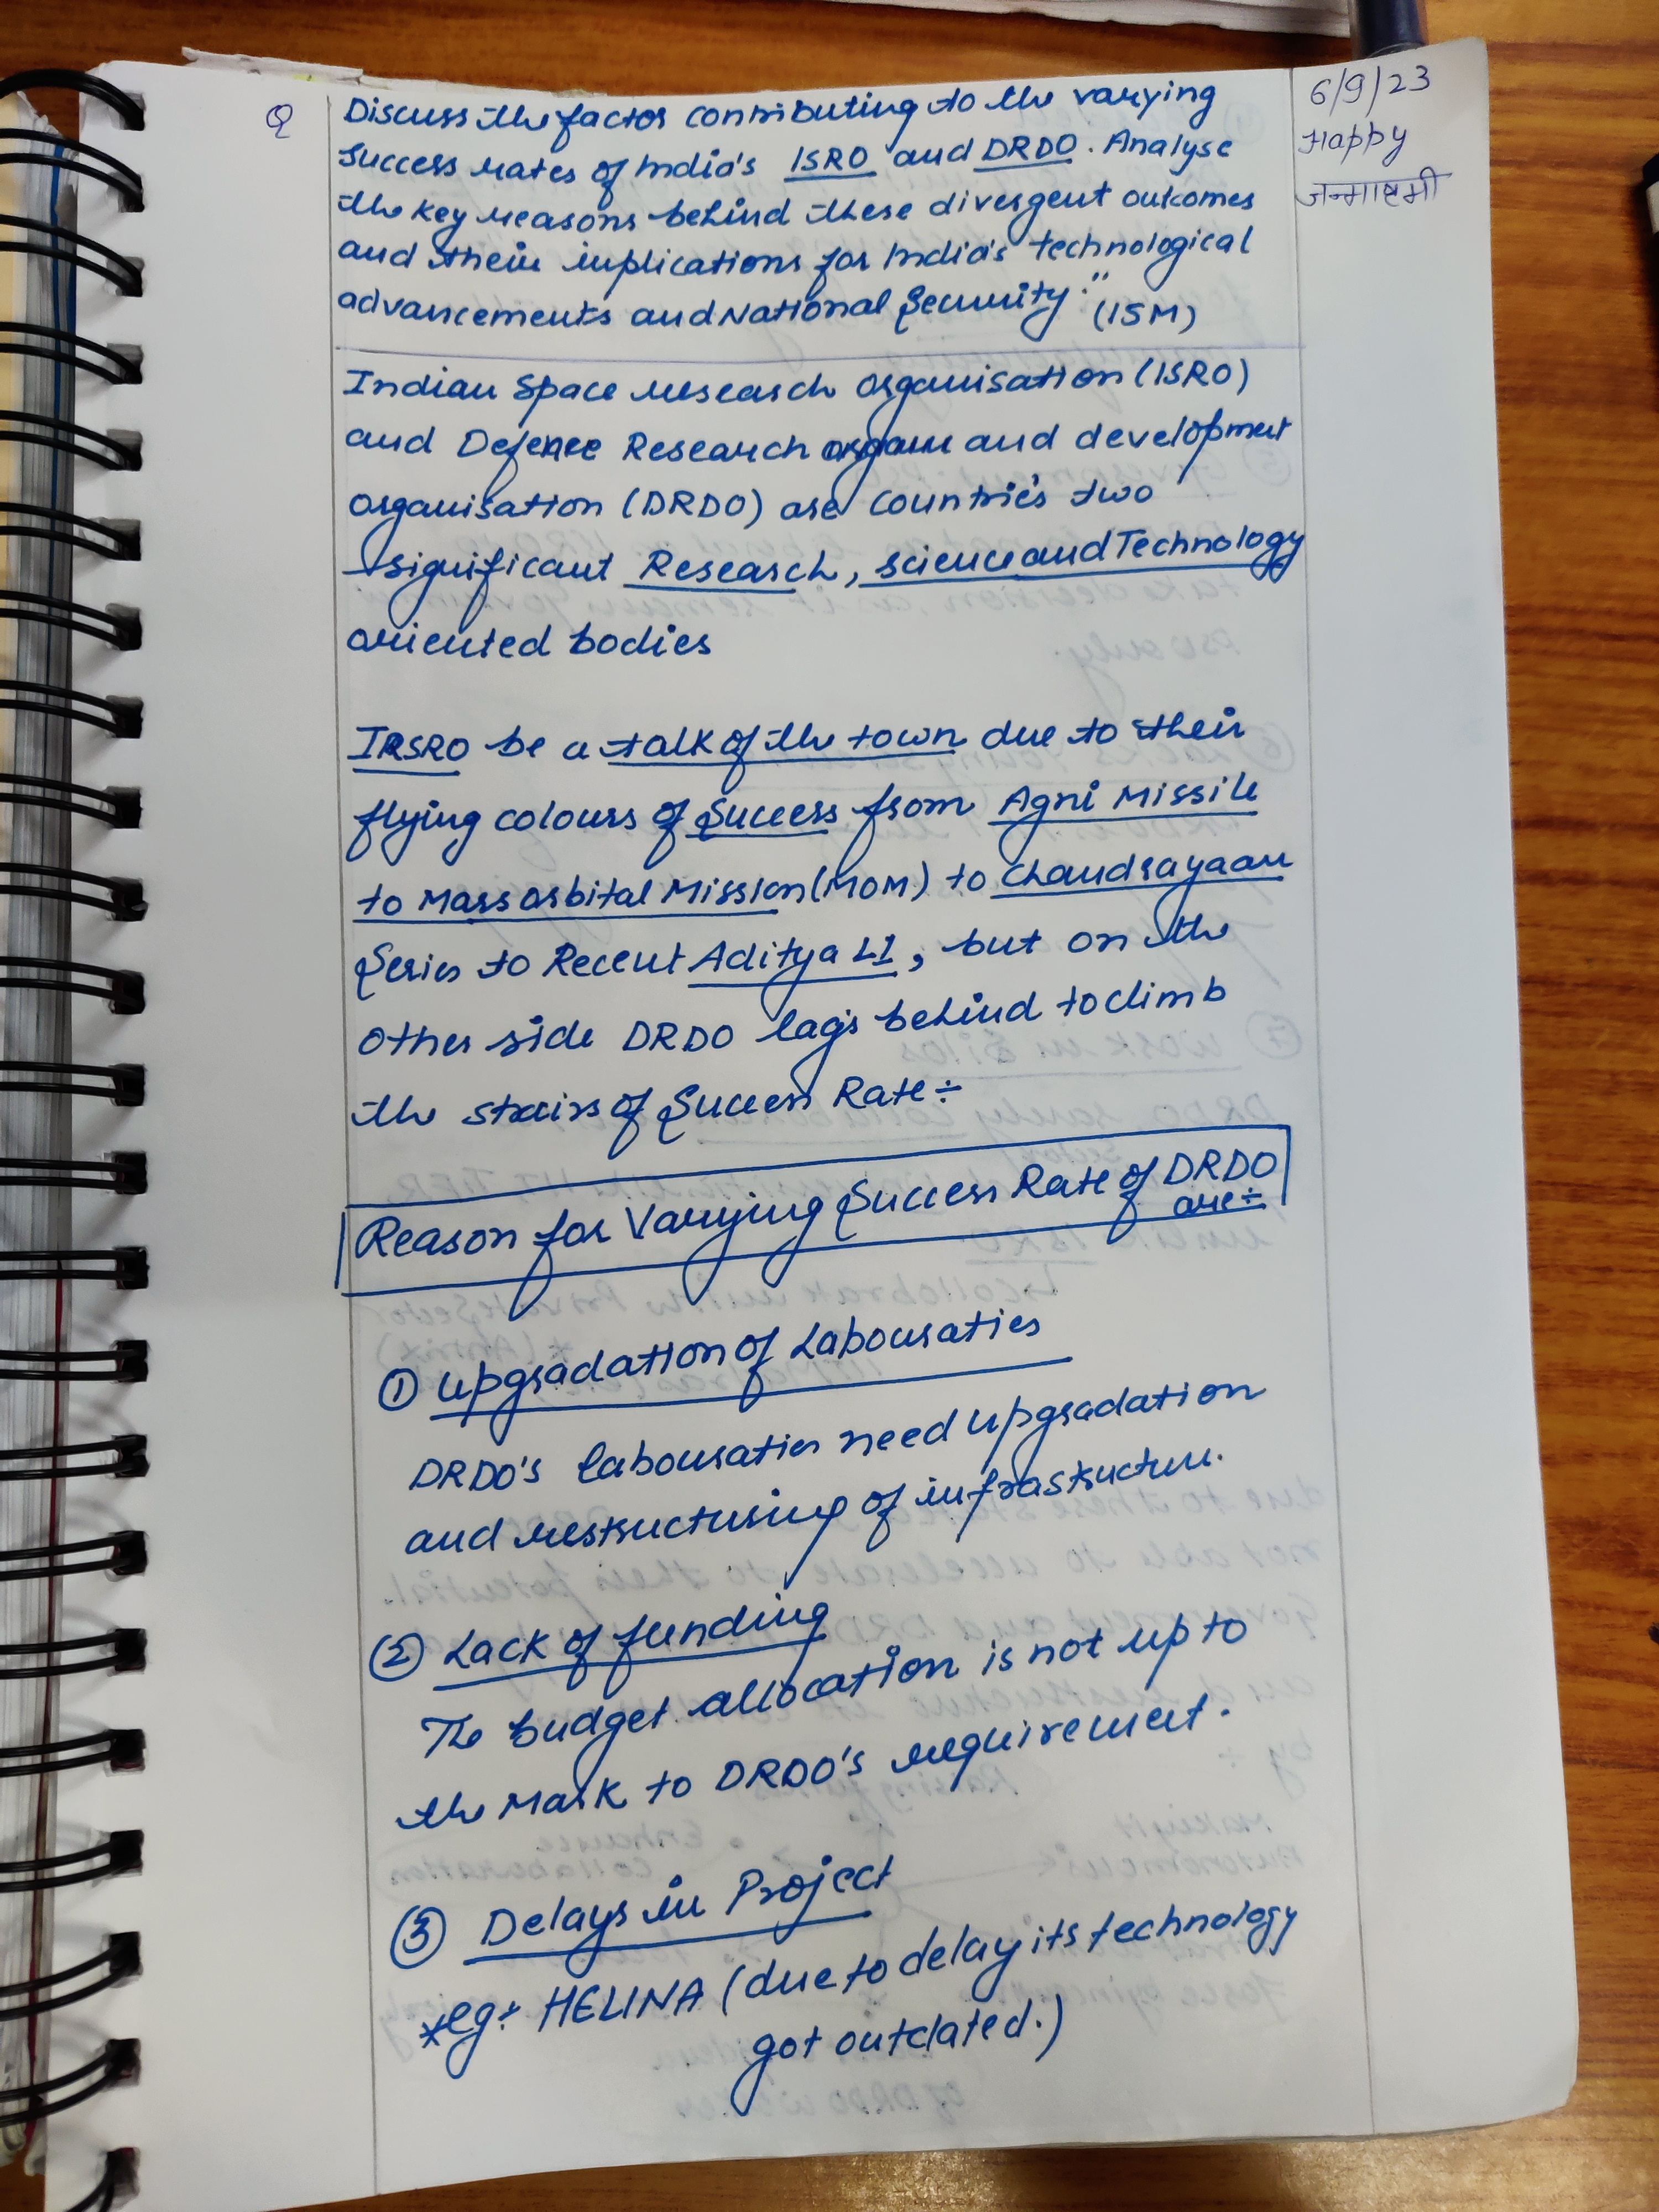 6/9/23
Happy
जन्माष्टमी
Q
Discuss the factor contributing to the varying
success rates of India's ISRO and DRDO. Analyse
the key reasons behind these divergent outcomes
and their implications for India's technological
advancements and National Security." (15M)
Indian Space research organisation (ISRO)
and Defence Research and development
organisation (DRDO) are countrie's two
significant Research, science and Technology
oriented bodies
ISRO be a talk of the town due to their
flying colours of Success from Agni Missile
to Mars orbital Mission (MOM) to Chandrayaan
Series to Recent Aditya L1, but on the
other side DRDO lag's behind to climb
the stairs of Success Rate÷
Reason for Varying Success Rate of DRDO
are÷
① Upgradation of Labouraties
DRDO's labouraties need upgradation
and restructuring of infrastructure.
② Lack of funding
The budget allocation is not up to
the Mark to DRDO's requirement.
③ Delays in Project
*eg÷ HELINA (due to delay its technology
got outdated.)